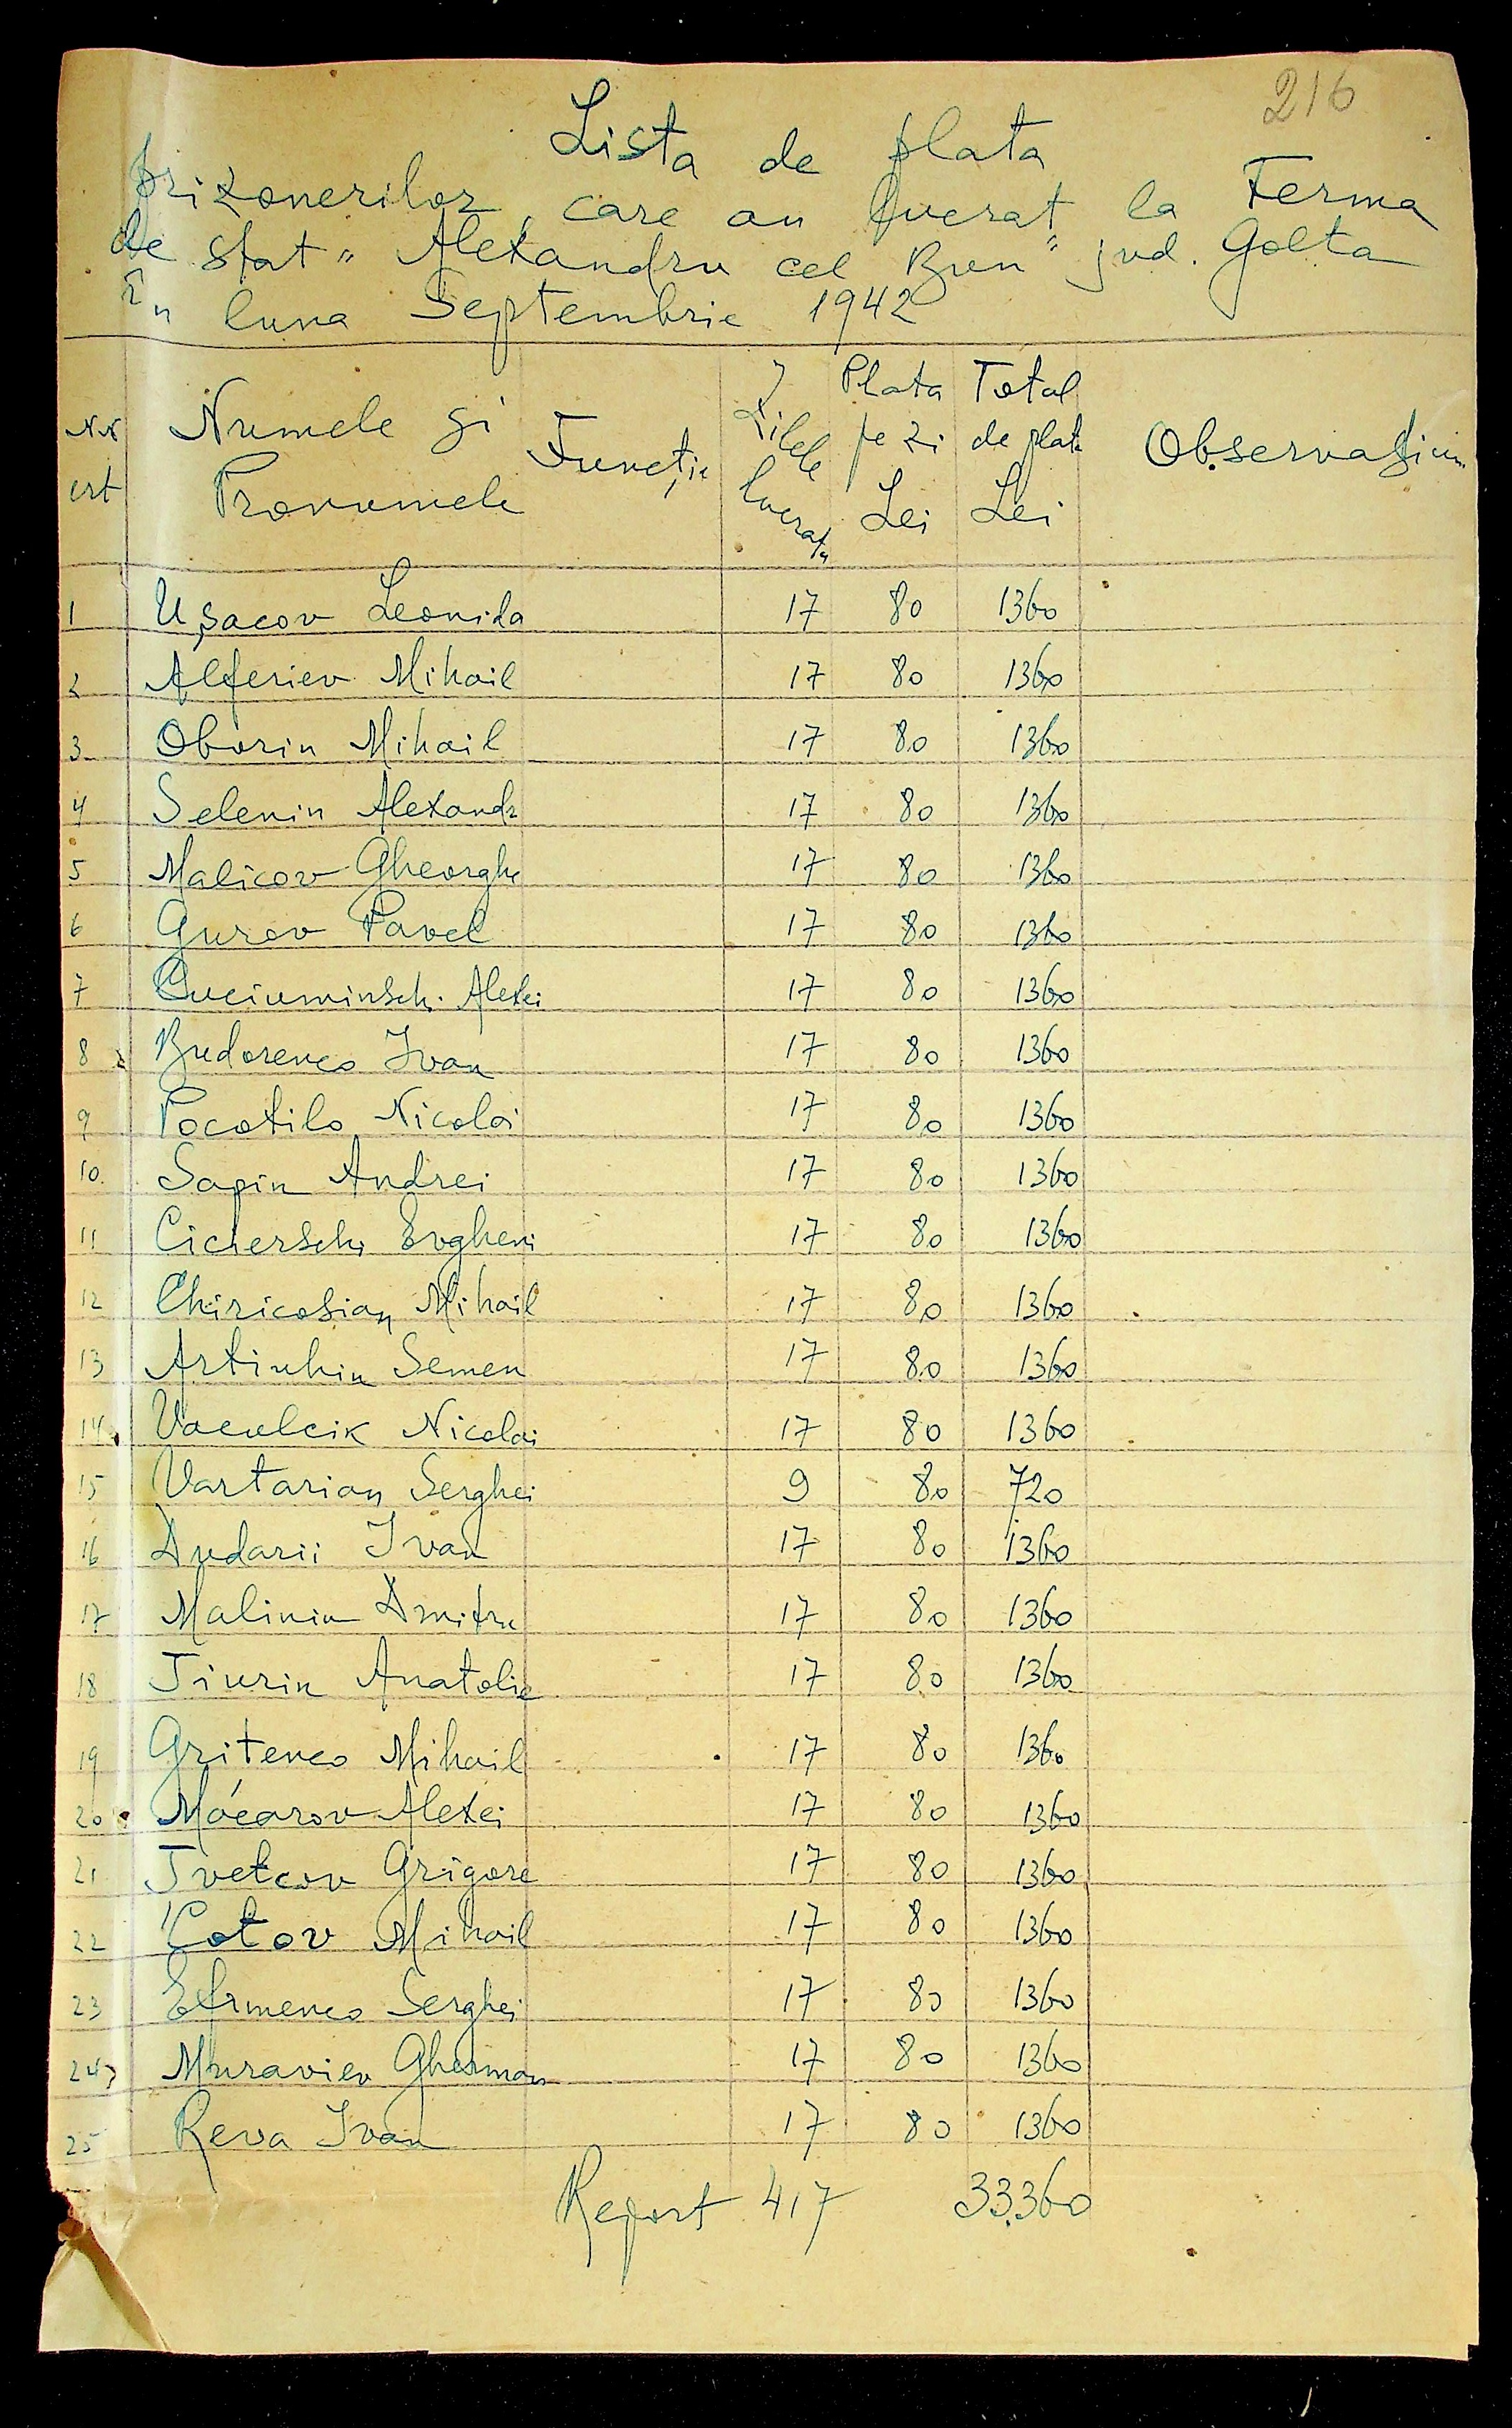 216
Lista de plata
prizonerilor, care au lucrat la Ferma
de stat "Alexandru cel Bun" jud. Golta
în luna Septembrie 1942
Nr crt Numele și Pronumele Funcție Zilele lucrate Plata pe zi Lei Total de plata Lei Observațiuni
1 Ușacov Leonida 17 80 1360
2 Alferiev Mihail 17 80 1360
3 Oborin Mihail 17 80 1360
4 Selenin Alexandr 17 80 1360
5 Malicov Gheorghe 17 80 1360
6 Gurov Pavel 17 80 1360
7 Alexei 17 80 1360
8 Budorenco Ivan 17 80 1360
9 Pocotilo Nicolai 17 80 1360
10. Sapin Andrei 17 80 1360
11 Cicierschi Evgheni 17 80 1360
12 Chiricosian Mihail 17 80 1360
13 Artiuhin Semen 17 80 1360
14 Vaculcik Nicolai 17 80 1360
15 Vartarian Serghei 9 80 720
16 Dudarii Ivan 17 80 1360
17 Malinin Dmitru 17 80 1360
18 Tiurin Anatolie 17 80 1360
19 Gritenco Mihail 17 80 1360
20 Macarov Alexei 17 80 1360
21 Tvetcov Grigore 17 80 1360
22 Cotov Mihail 17 80 1360
23 Efrmenco Serghei 17 80 1360
24 Muraviev Gherman 17 80 1360
25 Reva Ivan 17 80 1360
Report 417 33.360